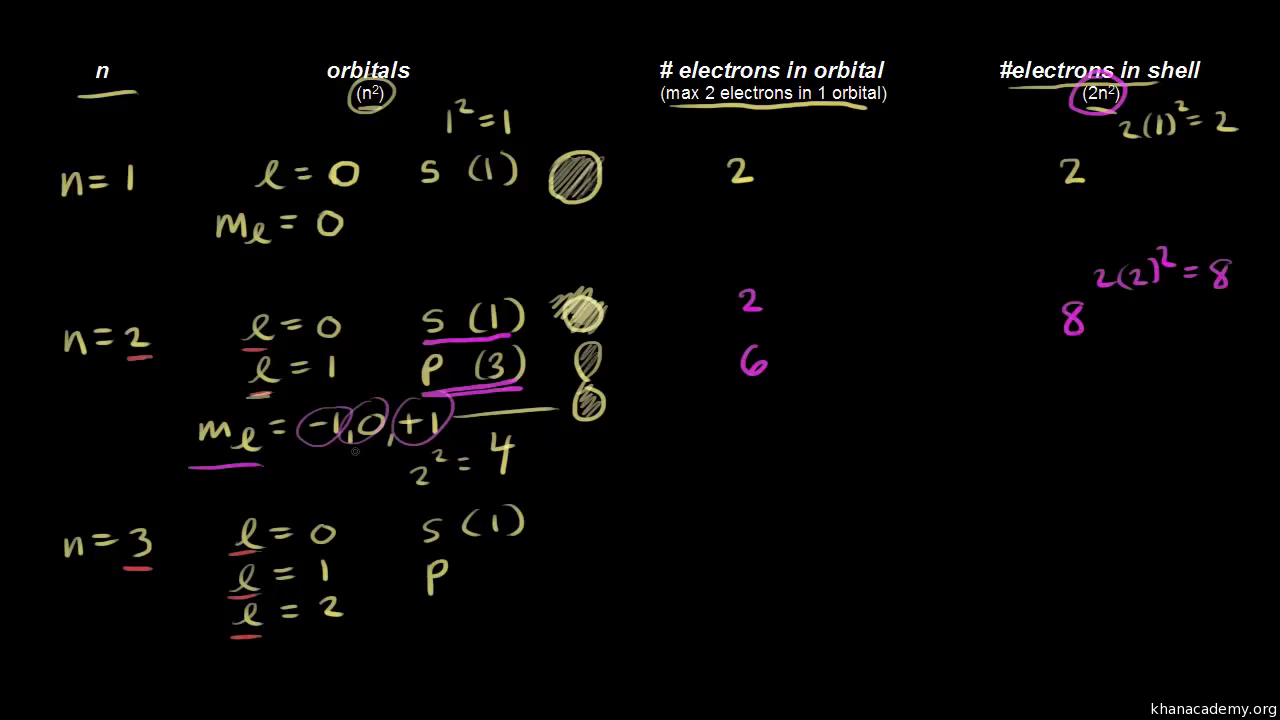 n orbitals # electrons in orbital #electrons in shell
(n²) (max 2 electrons in 1 orbital) (2n²)
1² = 1 2(1)² = 2
n = 1 l = 0 s (1) 2 2
mₗ = 0
2(2)² = 8
n = 2 l = 0 s (1) 2 8
l = 1 p (3) 6
mₗ = -1, 0, +1
2² = 4
n = 3 l = 0 s (1)
l = 1 p
l = 2
khanacademy.org